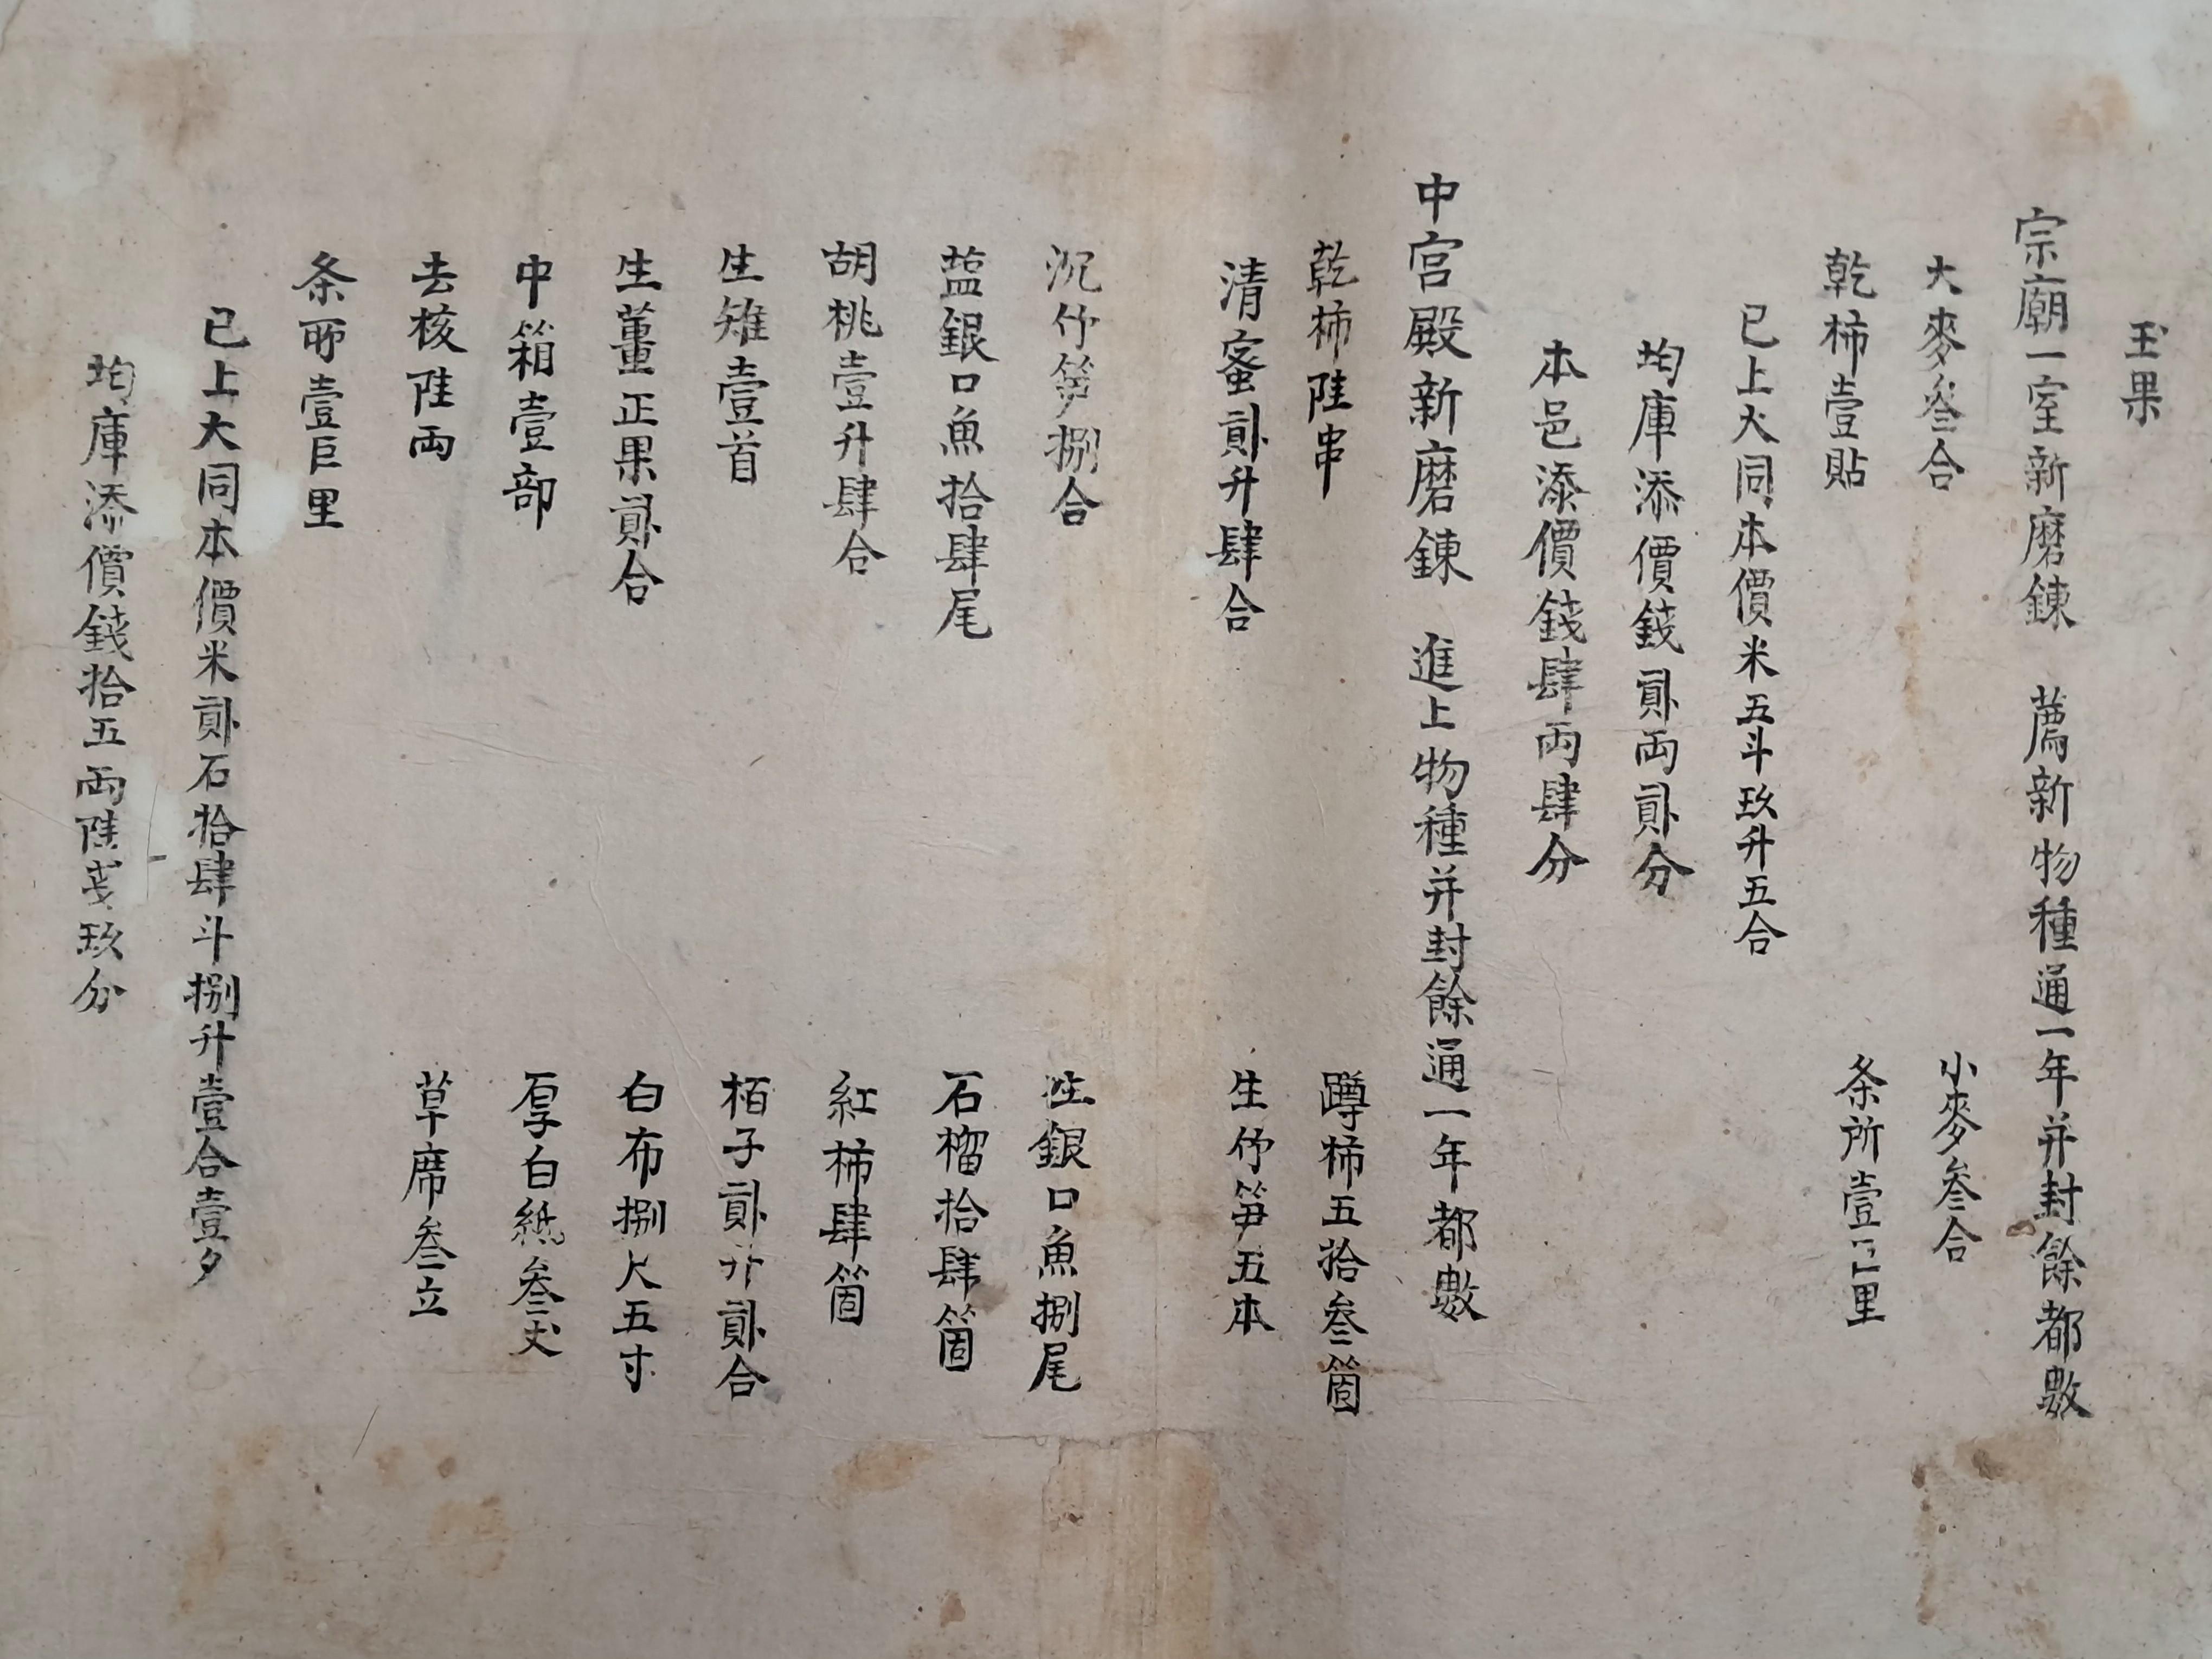 玉果
宗廟一室新磨鍊　薦新物種通一年并封餘都數
大麥叄合　小麥叄合
乾柿壹貼　条所壹巨里
已上大同本價米五斗玖升五合
均庫添價錢貳兩貳分
本邑添價錢肆兩肆分
中宮殿新磨鍊　進上物種并封餘通一年都數
乾柿陸串　蹲柿五拾叄箇
清蜜貳升肆合　生竹笋五本
沉竹笋捌合　生銀口魚捌尾
塩銀口魚拾肆尾　石榴拾肆箇
胡桃壹升肆合　紅柿肆箇
生雉壹首　栢子貳升貳合
生薑正果貳合　白布捌尺五寸
中箱壹部　厚白紙叄丈
去核陸兩　草席叄立
条所壹巨里
已上大同本價米貳石拾肆斗捌升壹合壹夕
均庫添價錢拾五兩陸戔玖分